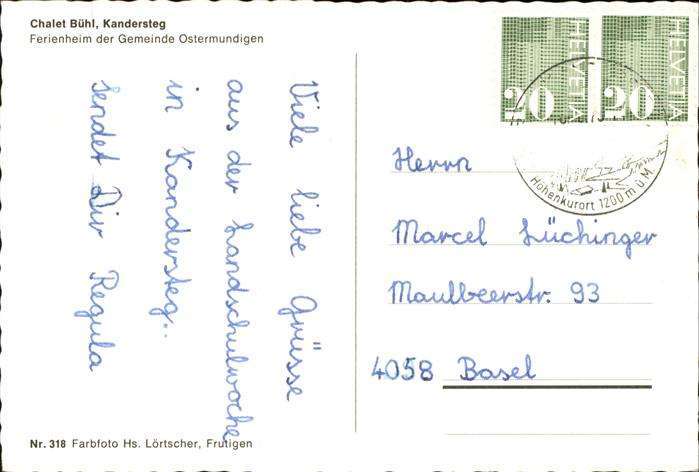 Chalet Bühl, Kandersteg
Ferienheim der Gemeinde Ostermundigen
HELVETIA
20
HELVETIA
20
Höhenkurort 1200 m ü.M.
Viele liebe Grüsse
aus der Landschulwoche
in Kandersteg..
sendet Dir Regula
Herrn
Marcel Lüchinger
Maulbeerstr. 93
4058 Basel
Nr. 318 Farbfoto Hs. Lörtscher, Frutigen